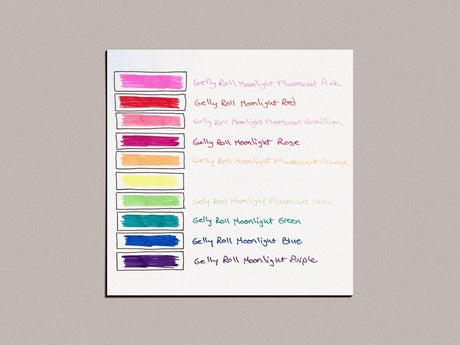 Gelly Roll Moonlight Fluorescent Pink
Gelly Roll Moonlight Red
Gelly Roll Moonlight Fluorescent Vermillion
Gelly Roll Moonlight Rose
Gelly Roll Moonlight Fluorescent Orange
Gelly Roll Moonlight Fluorescent Green
Gelly Roll Moonlight Green
Gelly Roll Moonlight Blue
Gelly Roll Moonlight Purple